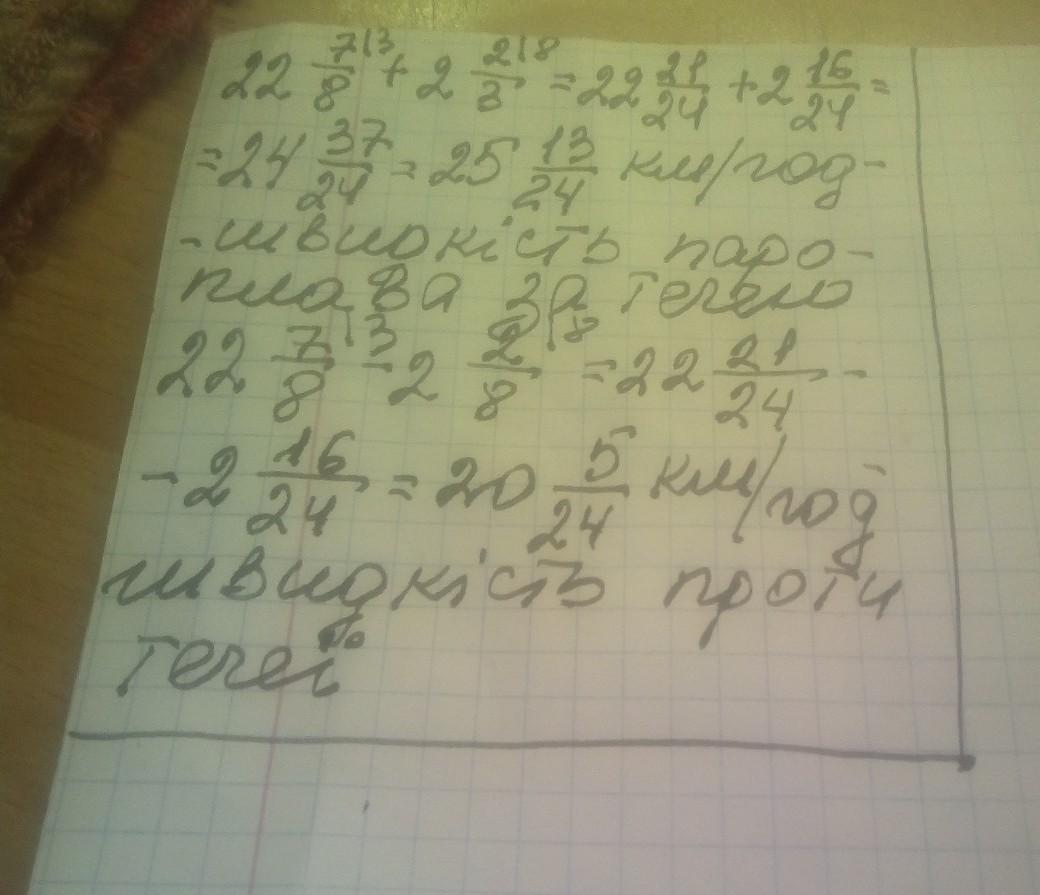 22 7|3/8 + 2 2|8/3 = 22 21/24 + 2 16/24 =
= 24 37/24 = 25 13/24 км/год -
- швидкість паро-
плава за течею
22 7|3/8 - 2 2|8/8 = 22 21/24 -
- 2 16/24 = 20 5/24 км/год
швидкість проти
течеї